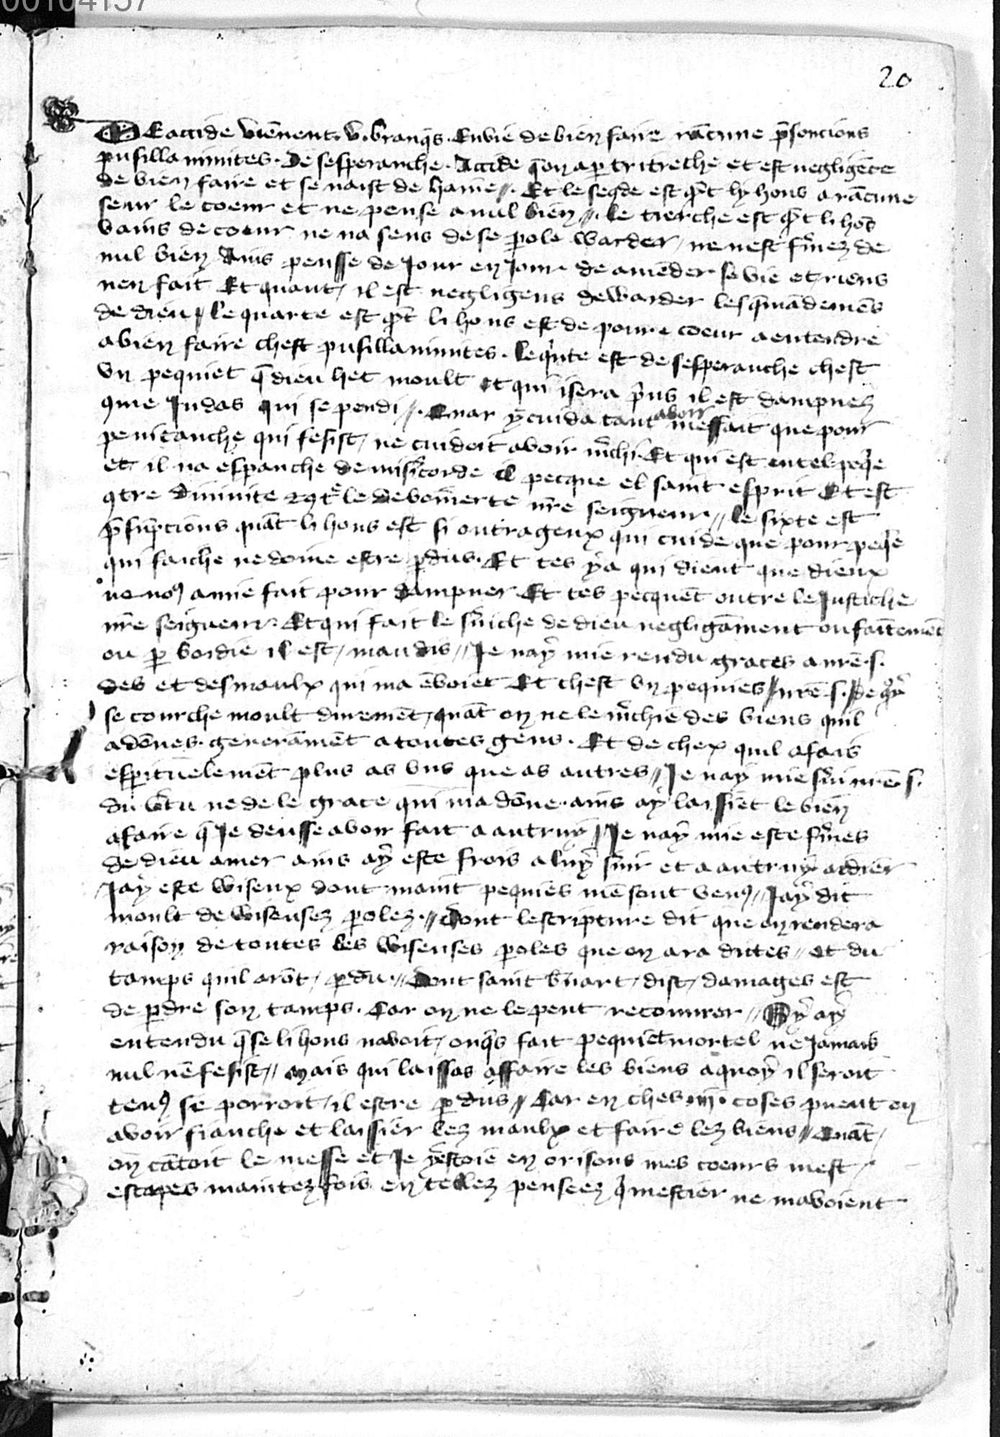 00104157
20
De accide vienent .v. branqs. Envie de bien faire rācune p̄sontions
pusillaminites. Desesperanche. Accide q̄ on apele tritreche et est negligēce
de bien faire et se naist de haine //. Et le segde est qn̄t ly hons a rācune
seur le coeur et ne pense a nul bien //. le tierche est qn̄t li hōs
vains de coeur ne na sens de se pole warder / ne nest fʼmez de
nul bien Ains pensse de Jour en Jour de amēder se vie et riens
nen fait Et quant / il est negligens de warder les 9mādemēs
de dieu / le quarte est qn̄t li hons est de poure coeur a entendre
a bien faire chest pusillaminites. le qʼnte est desesperanche chest
vn pequiet q̄ dieu het moult et qui isera pʼns il est dampnez
9me Judas qui se pendi //. Quar y cuida tant avoir meffait que pour
penitanche qui fesist / ne cuidoit avoir mʼchi. Et qui est en tel peqʼe
et il na espanche de misʼicorde il pecque el saint esprit Et est
9tre diuinite 2 9tʼe le deboinerte nr̄e seigneur // le sixte est
p̄supcions quāt li hons est si outrageux qui cuide que pour peqʼe
qui faiche ne doiue estre pdus. Et tes y a qui dient que dieux
ne no9 a mie fait pour dampner Et tes pecquēt contre le Justiche
nr̄e seigneur. Et qui fait le sʼuiche de dieu negligāment ou faitemēt
ou p boidie il est / maudis // Je nay mie rendu graces a nr̄e .s.
des et des maulx qui ma ēvoiet Et chest vn pequies / nr̄e .s. de qʼy
se courche moult durement / quāt on ne le mʼchie des biens quil
a dōnes generāment a toutes gens. Et de chex quil a fais
espirituelemēt plus as vns que as autres // Je nay mie sʼui nr̄e .s.
du vʼtu ne de le grace qui ma dōne. ains ay laissiet le bien
a faire q̄ Je deusse avoir fait a autruy // Je nay mie este fʼmes
de dieu amer ains ay este frois a luy sʼuir et a autruy aidier
Jay este wiseux dont maint pequies mē sont venus // Jay dit
moult de wiseusez polez // dont lescripture dit que on rendera
raison de toutes les wiseuses poles que on ara dittes // et du
tamps quil arōt / pdu // dont saint bʼnart / dist / damages est
de pdre son tamps. Car on ne le peut recouurer // Gy ay
entendu q̄ se li hons navoit / onqʼs fait pequiet mortel ne Jamais
nul nē fesist // mais qui laissas affaire les biens a quoy il seroit
tenus se porroit / il estre pdus // Car en ches .iij. coses peut on
avoir fianche et laissier lez maulx et faire lez biens // Quāt /
on cātoit le messe et Je estoie en orisons mes coeurs mest /
escapes maintez fois en tellez pensees q̄ mestier ne mavoient